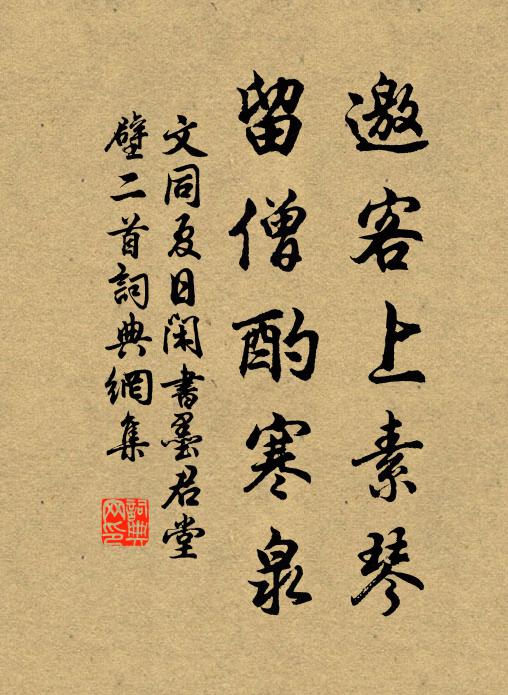 邀客上素琴
留僧酌寒泉
文同夏日閑書墨君堂
壁二首詞典網集
詞典网印